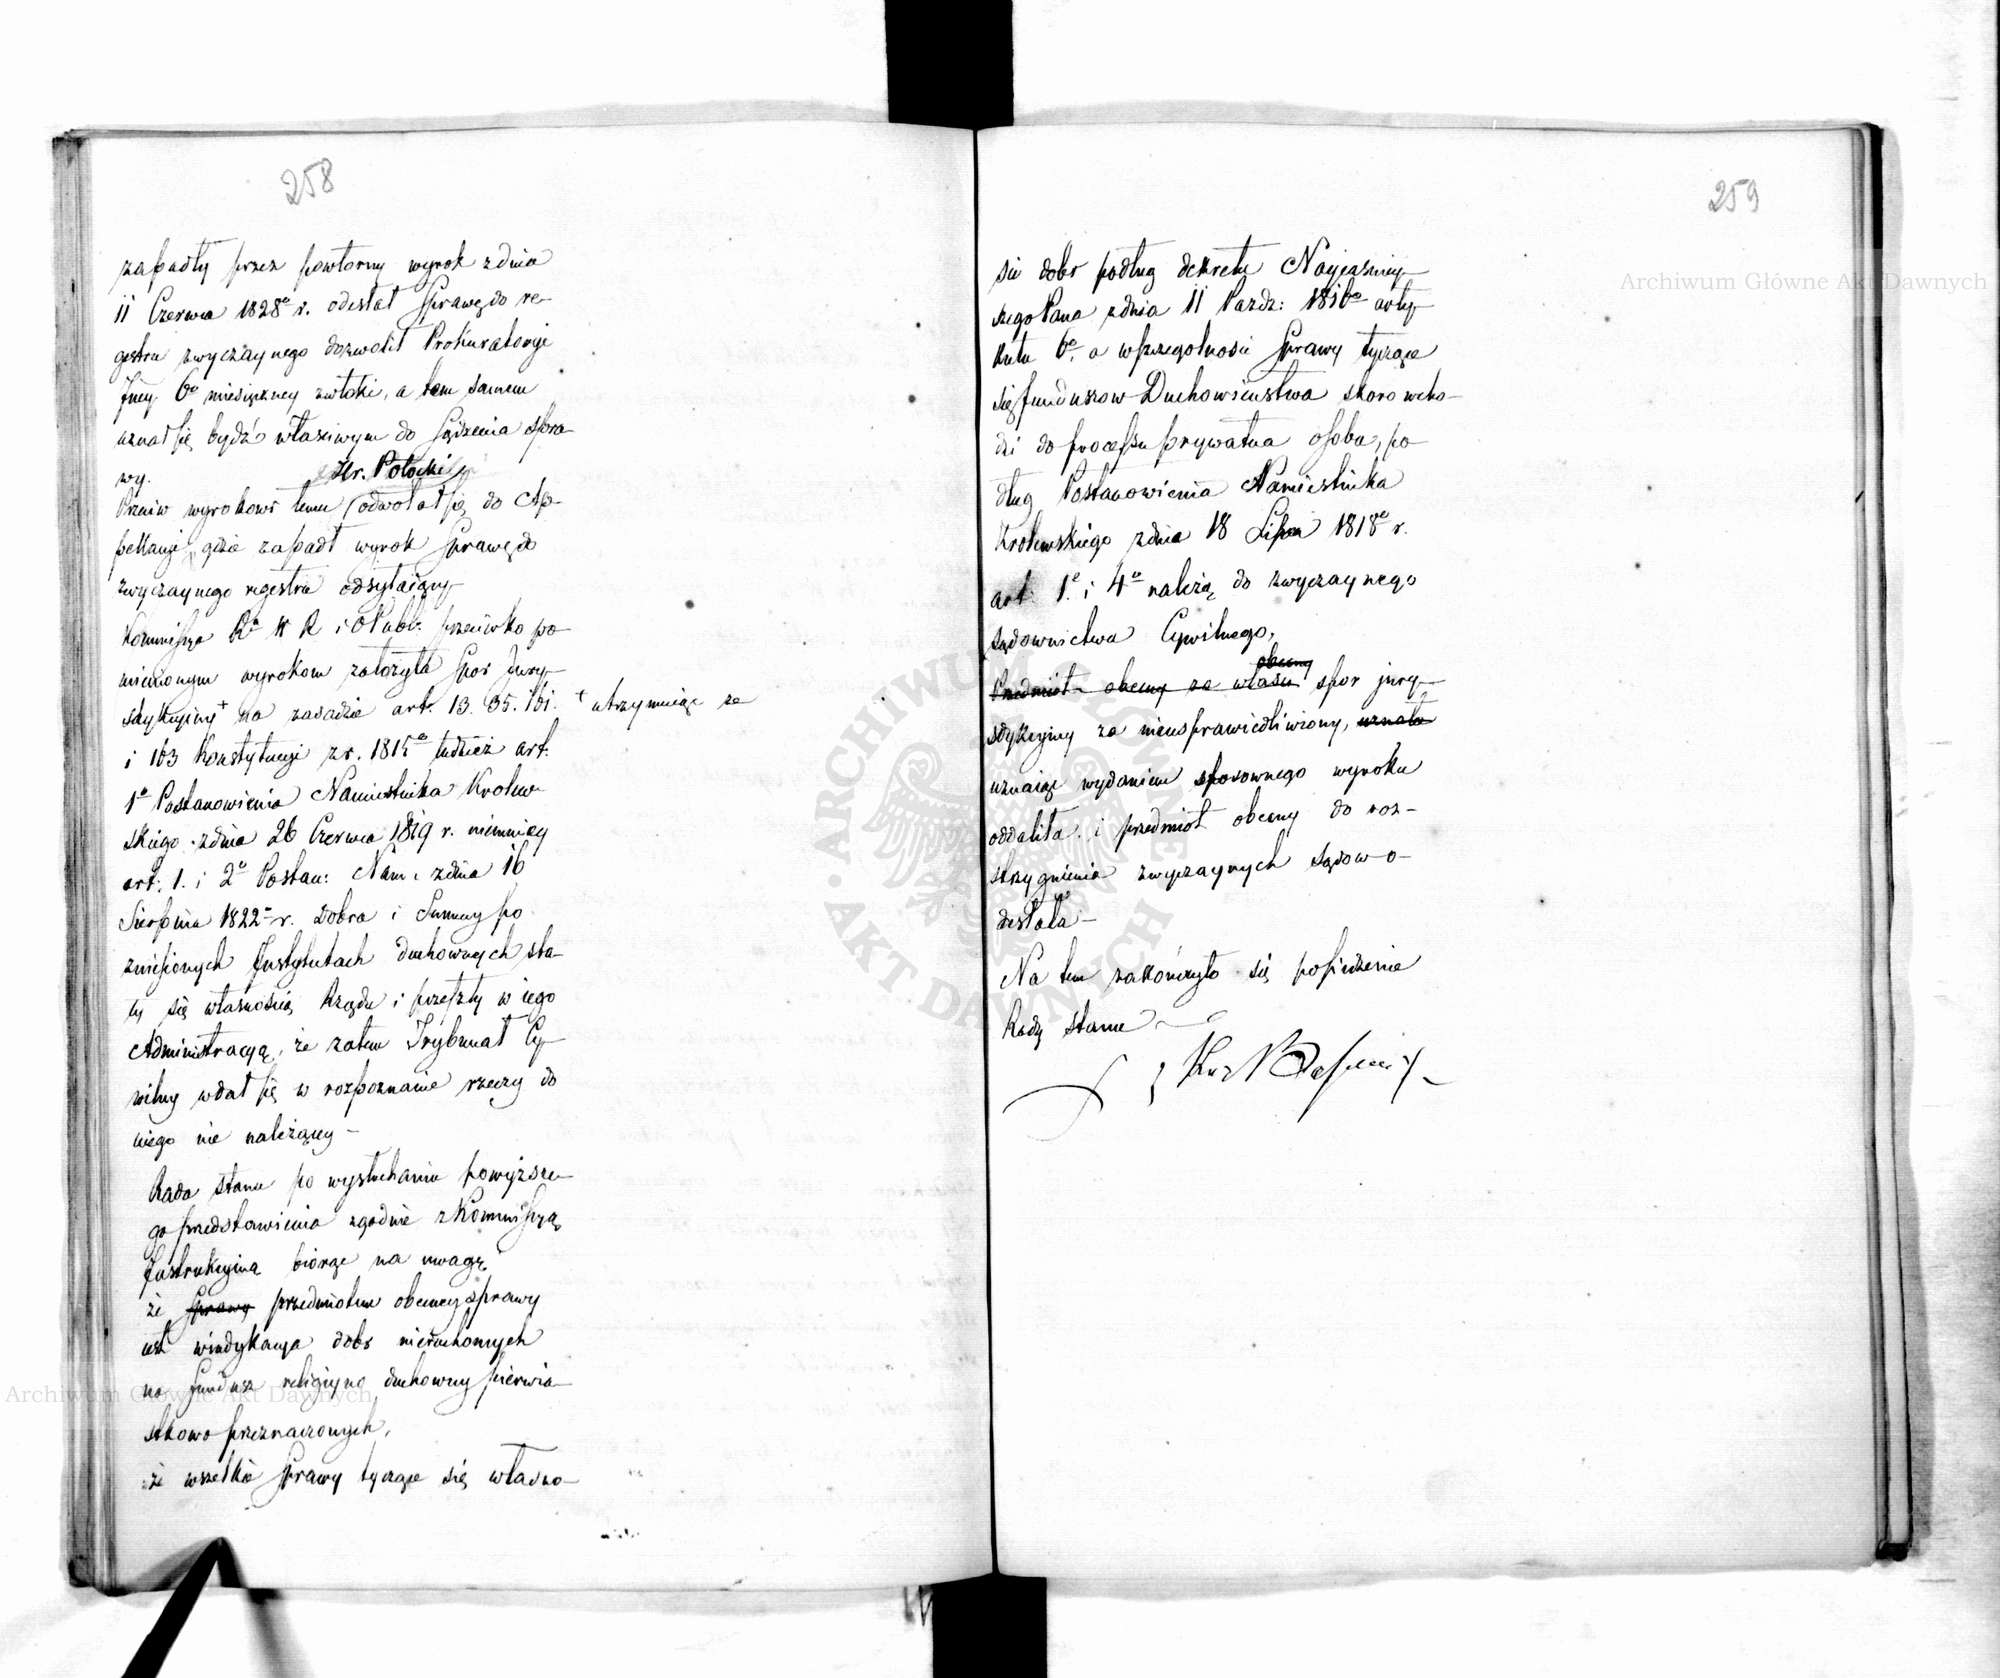 258
zapadły przez powtorny wyrok z dnia
11 Czerwca 1828º r. odesłał Sprawę do re-
gestru zwyczaynego dozwolił Prokuratoryi
Jney 6º miesięczney zwłoki, a tem samem
uznał się bydź właściwym do sądzenia spra-
wy.
Hr. Potocki
Przeciw wyrokowi temu odwołał się do Ap-
pellacyi, gdzie zapadł wyrok Sprawę do
zwyczaynego regestru odsyłaiący-
Kommissya R. W R i O Publ. przeciwko wy-
mienionym wyrokom założyła Spor Jury-
sdykcyiny + na zasadzie art. 13. 35. 161.
+ utrzymuiąc ze
i 163 Konstytucyi z r. 1815º tudzież art.
1º Postanowienia Namiestnika Krolew-
skiego z dnia 26 Czerwca 1819 r. niemniey
art. 1. i 2º Postan: Nam: z dnia 16
Sierpnia 1822º r. Dobra i Summy po
zniesionych Instytutach duchownych sta-
ły się własnością Rządu i przeszły w iego
Administracyą, że zatem Trybunał Cy-
wilny wdał się w rozpoznanie rzeczy do
niego nie należącey -
Rada Stanu po wysłuchaniu powyższe-
go przedstawienia zgodnie z Kommissyą
Instrukcyiną biorąc na uwagę
że Sprawy przedmiotem obecney sprawy
iest windykacya dobr nieruchomych
na fundusz religiyno duchowny pierwia-
stkowo przeznaczonych,
że wszelkie Sprawy tyczące się własno-
259
Archiwum Główne Akt Dawnych
sci dobr podług dekretu Nayiasniey-
szego Pana z dnia 11 Pazdz: 1816º arty-
kułu 6º, a w szczegolnosci Sprawy tyczące
się funduszow Duchowieństwa skoro wcho-
dzi do processu prywatna osoba, po-
dług Postanowienia Namiestnika
Krolewskiego z dnia 18 Lipca 1818º r.
art. 1º i 4º należą do zwyczaynego
sądownictwa Cywilnego,
obecny
Przedmiot obecny za własci spor jury-
sdykcyiny za nieusprawiedliwiony, uznała
uznaiąc wydaniem stosownego wyroku
oddaliła i przedmiot obecny do roz-
strzygnienia zwyczaynych Sądow o-
desłała -
Na tem zakończyło się posiedzenie
Rady Stanu
ARCHIWUM GŁÓWNE AKT DAWNYCH
Archiwum Główne Akt Dawnych